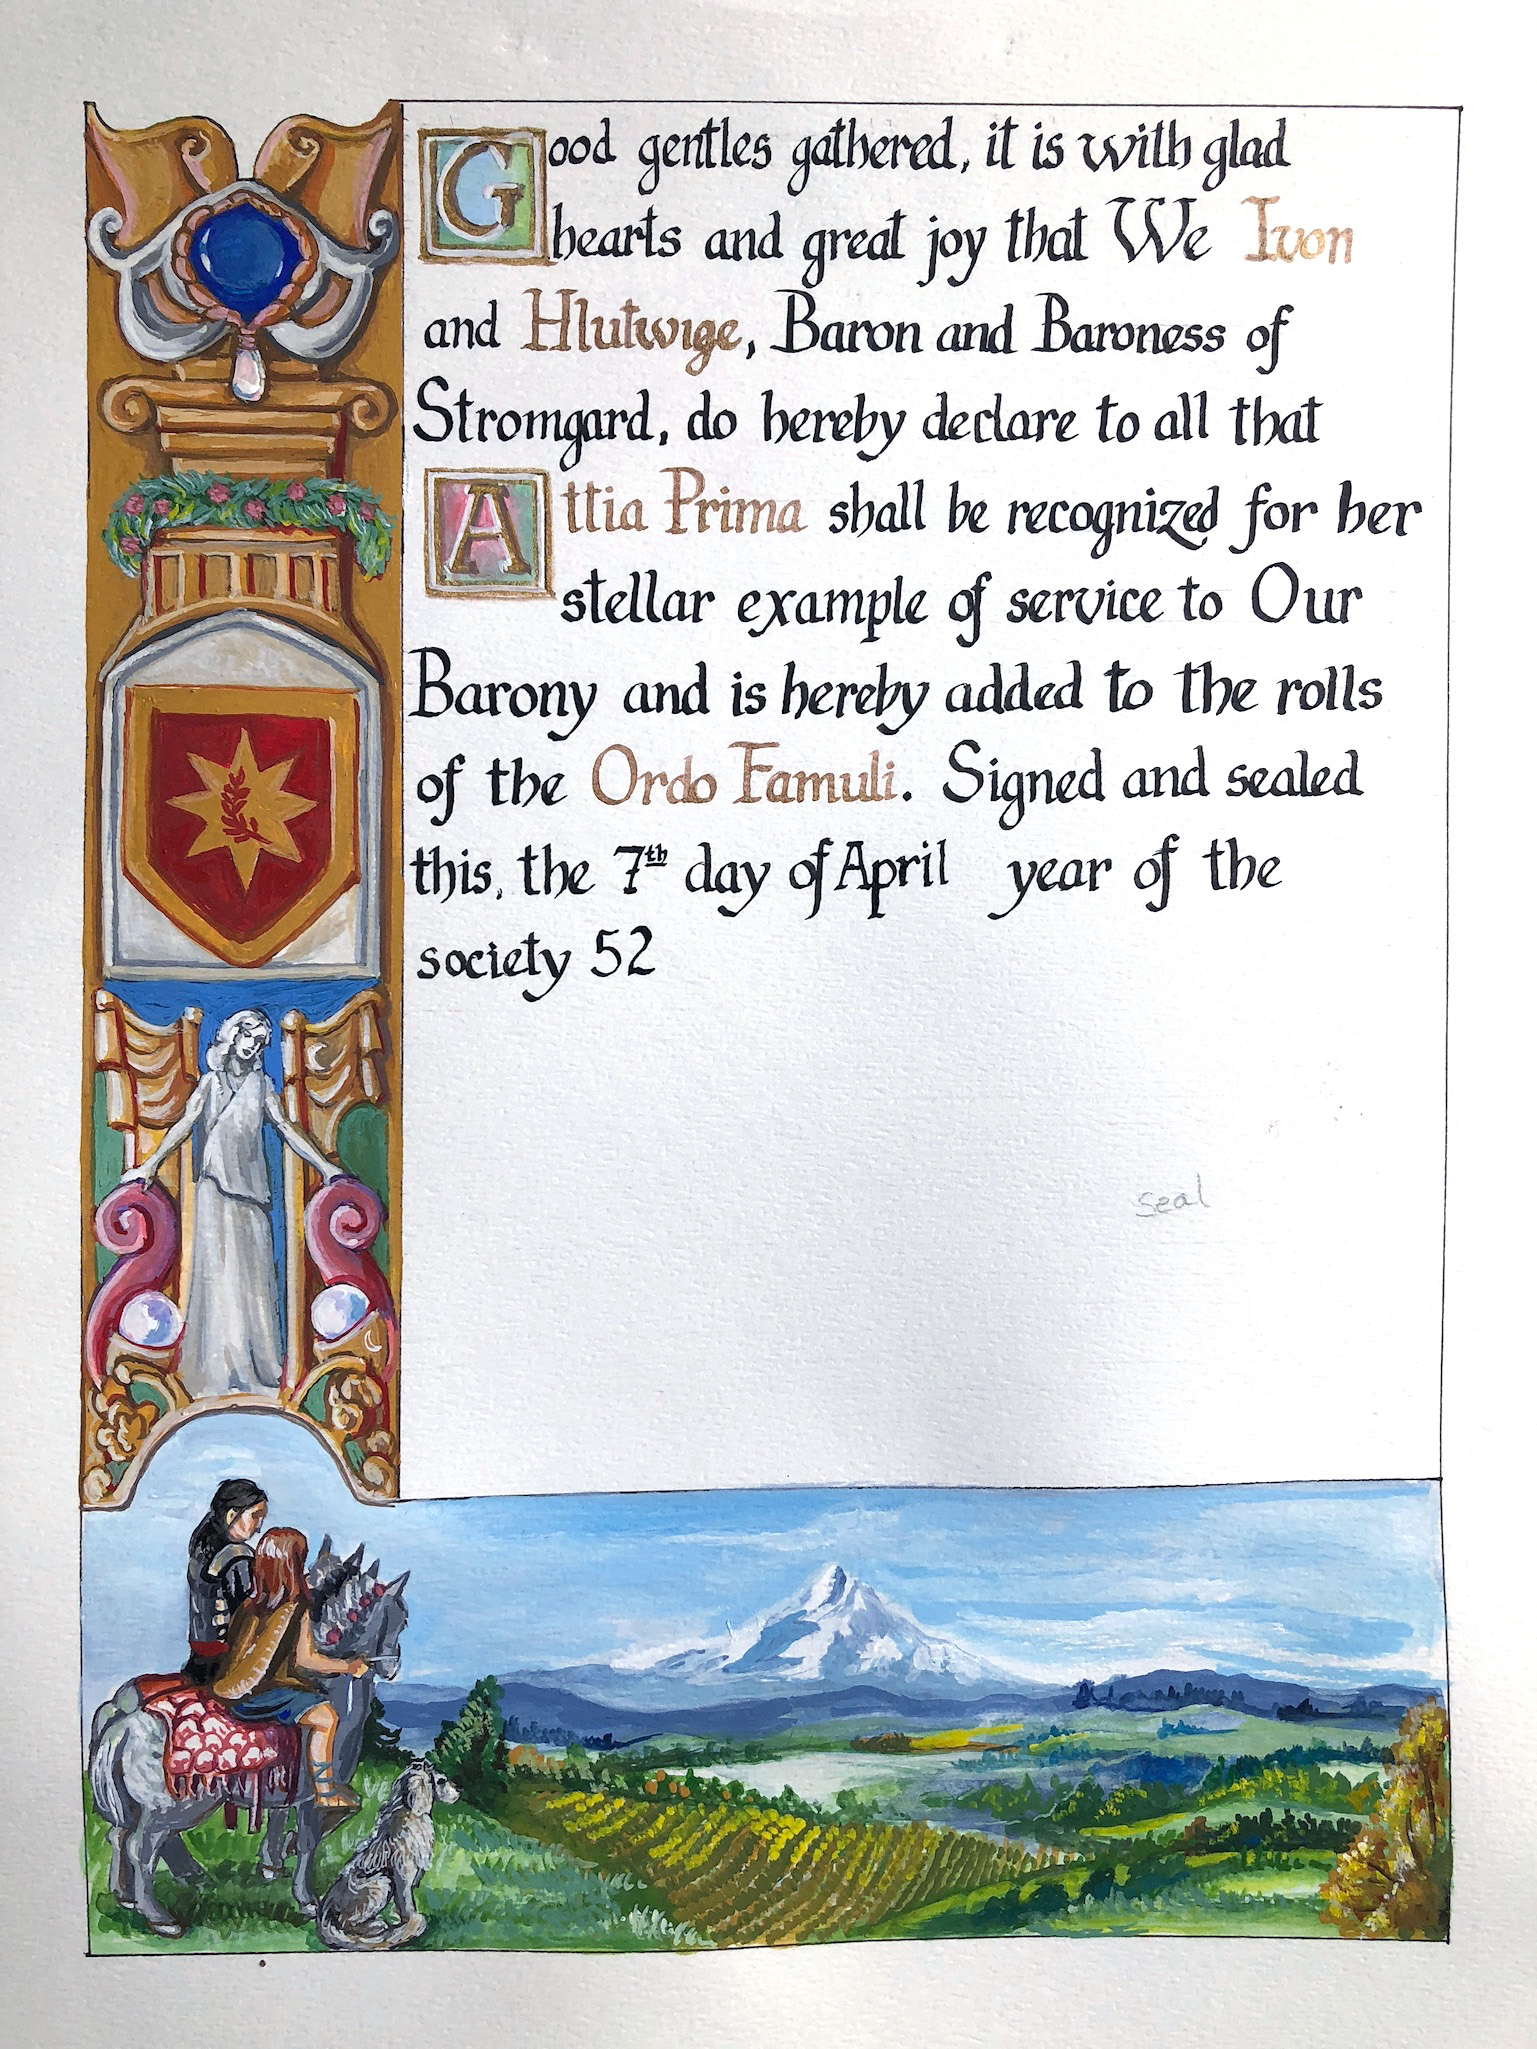 Good gentles gathered, it is with glad
hearts and great joy that We Ivon
and Hlutwige, Baron and Baroness of
Stromgard, do hereby declare to all that
Attia Prima shall be recognized for her
stellar example of service to Our
Barony and is hereby added to the rolls
of the Ordo Famuli. Signed and sealed
this, the 7th day of April year of the
society 52
seal